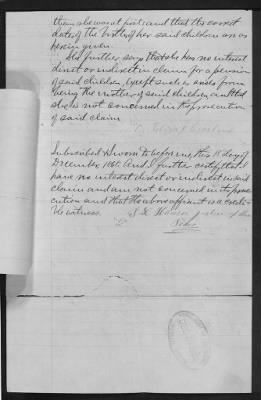 then shewas present, and that the correct
date of the birth of her said children are as
herein given.
She further says that she has no interest
direct or indirect in claim for a pension
of said children, except such as ends from
being the mother of said children, and that
she is not concerned in the prosecution
of said claim.
Subscribed & sworn to before me, this 18 day of
December, 1865. And I further certify that I
have no interest direct or indirect in said
claim and am not concerned in its prose
cution and that the above affiant is a credi-
ble witness.
Justice of the
Peace